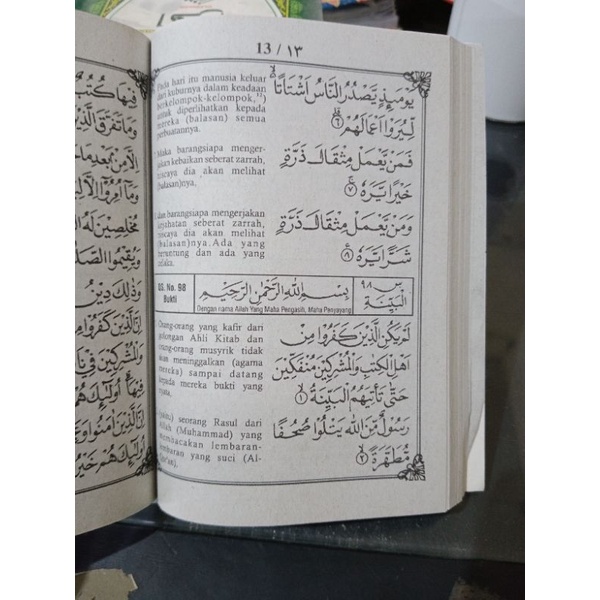 فِيهَا كُتُبٌ
وَمَا تَفَرَّقَ الَّذِينَ
اِلَّا مِنْۢ بَعْدِ مَا
وَمَآ اُمِرُوْٓا اِلَّا لِيَ
مُخْلِصِيْنَ لَهُ ال
وَيُقِيْمُوا الصَّلٰ
وَذٰلِكَ دِيْنُ
اِنَّ الَّذِيْنَ كَفَرُوْا مِ
وَالْمُشْرِكِيْنَ فِيْ نَا
فِيْهَا اُولٰۤىِٕكَ هُ
اِنَّ الَّذِيْنَ اٰمَنُوْا وَ
اُولٰۤىِٕكَ هُمْ خَيْرُ
13 / ١٣
Pada hari itu manusia keluar
dari kuburnya dalam keadaan
berkelompok-kelompok,
untuk diperlihatkan kepada
mereka (balasan) semua
perbuatannya.
يَوْمَىِٕذٍ يَّصْدُرُ النَّاسُ اَشْتَاتًا
لِّيُرَوْا اَعْمَالَهُمْ ۝٦
Maka barangsiapa menger-
jakan kebaikan seberat zarrah,
niscaya dia akan melihat
(balasan)nya.
فَمَنْ يَّعْمَلْ مِثْقَالَ ذَرَّةٍ
خَيْرًا يَّرَهٗ ۝٧
dan barangsiapa mengerjakan
kejahatan seberat zarrah,
niscaya dia akan melihat
(balasan)nya. Ada yang
beruntung dan ada yang
celaka.
وَمَنْ يَّعْمَلْ مِثْقَالَ ذَرَّةٍ
شَرًّا يَّرَهٗ ۝٨
QS. No. 98
Bukti
بِسْمِ اللّٰهِ الرَّحْمٰنِ الرَّحِيْمِ
Dengan nama Allah Yang Maha Pengasih, Maha Penyayang
س ٩٨
الْبَيِّنَة
Orang-orang yang kafir dari
golongan Ahli Kitab dan
orang-orang musyrik tidak
akan meninggalkan (agama
mereka) sampai datang
kepada mereka bukti yang
nyata,
لَمْ يَكُنِ الَّذِيْنَ كَفَرُوْا مِنْ
اَهْلِ الْكِتٰبِ وَالْمُشْرِكِيْنَ مُنْفَكِّيْنَ
حَتّٰى تَأْتِيَهُمُ الْبَيِّنَةُ ۝١
(yaitu) seorang Rasul dari
Allah (Muhammad) yang
membacakan lembaran-
lembaran yang suci (Al-
Qur'an),
رَسُوْلٌ مِّنَ اللّٰهِ يَتْلُوْا صُحُفًا
مُّطَهَّرَةً ۝٢